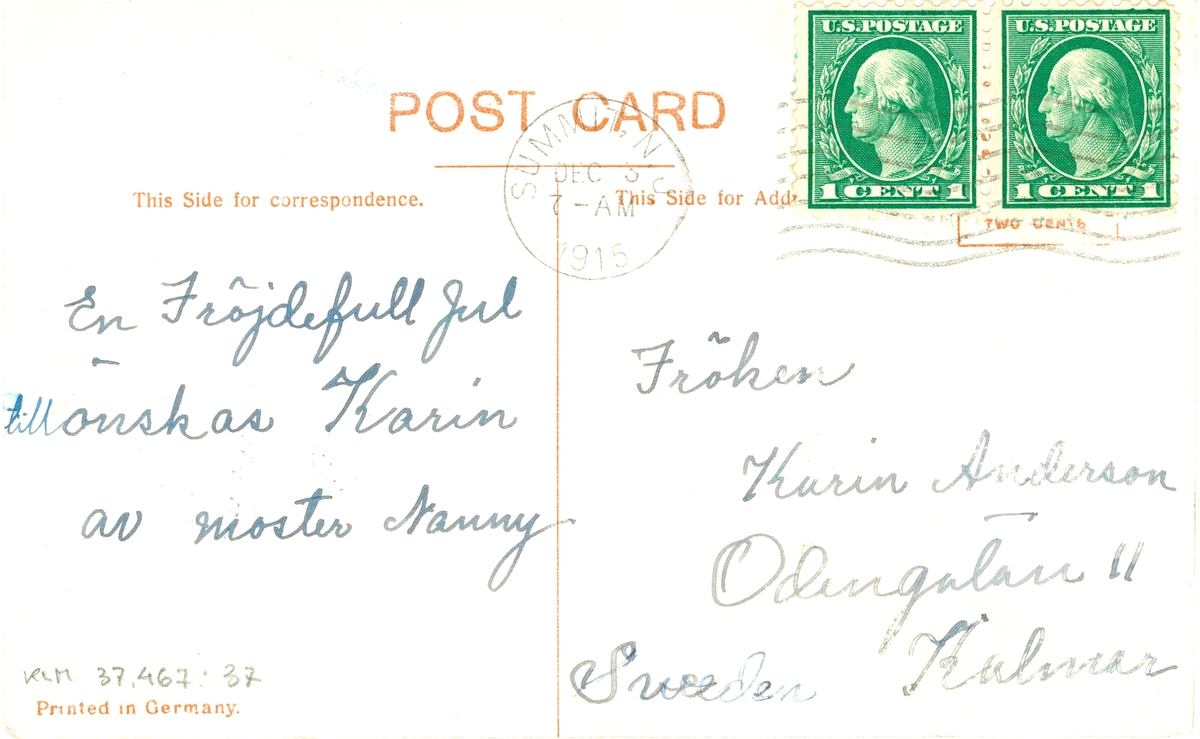 U.S. POSTAGE U.S. POSTAGE
1 CENT 1 1 CENT 1
POST CARD
SUMMIT, N.J.
DEC 3
7-AM
1915
This Side for correspondence.
This Side for Add
TWO CENTS
En Fröjdefull Jul
tillönskas Karin
av moster Nanny
Fröken
Karin Anderson
Odengatan 11
Kalmar
Sweden
KLM 37.467:37
Printed in Germany.